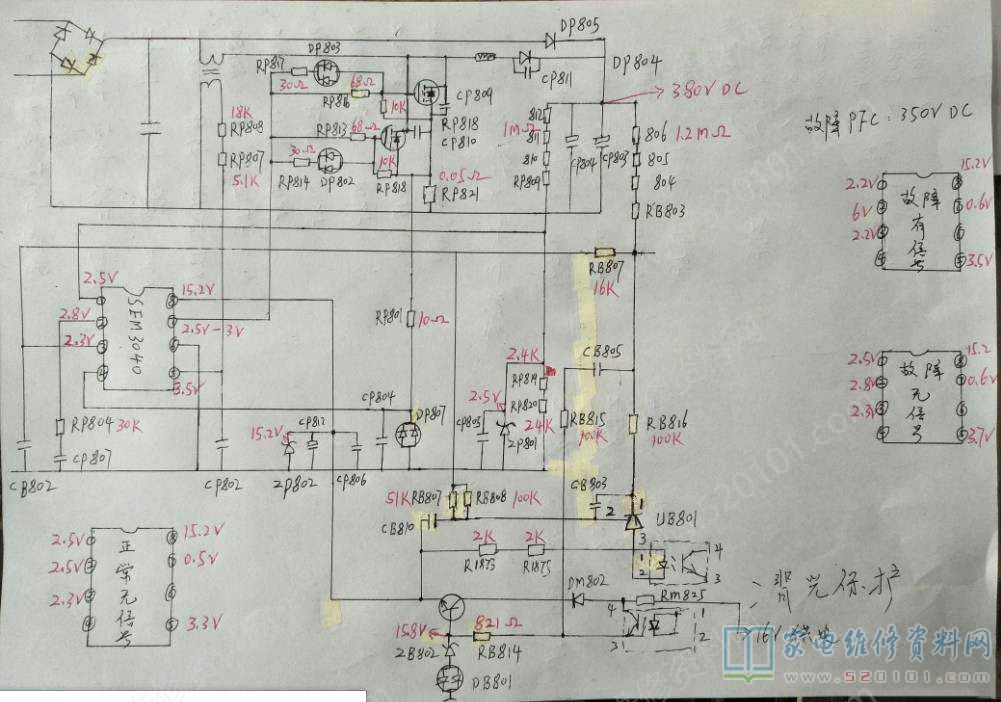 DP805
DP803
DP804
RP817
30Ω
68Ω
RP816
10K
CP809
CP811
380V DC
故障 PFC：350V DC
18K
RP808
RP807
5.1K
RP813
68Ω
RP818
CP810
1MΩ
812
811
810
RP809
CP804
CP803
806
1.2MΩ
805
804
RB803
30Ω
RP814
DP802
10K
RP818
0.05Ω
RP821
15.2V
2.2V
6V
2.2V
0.6V
3.5V
故障有信号
RB807
16K
2.5V
2.8V
2.3V
SEM3040
15.2V
2.5V-3V
3.5V
RP801
10Ω
CB805
2.4K
RP819
RP820
24K
2.5V
CP805
ZP801
RB815
100K
RB816
100K
2.5V
2.8V
2.3V
15.2
0.6V
3.7V
故障无信号
RP804
30K
CP807
CP804
DP807
15.2V
CP812
CB802
CP802
ZP802
CP806
51K
RB807
RB808
100K
CB803
CB810
1
2
3
UB801
2.5V
2.5V
2.3V
15.2V
0.5V
3.3V
正常无信号
2K
2K
R1873
R1875
1
2
4
3
DM802
RM825
背光保护
4
3
1
2
16V供电
15.8V
821Ω
ZB802
RB814
DB801
家电维修资料网
www.520101.com